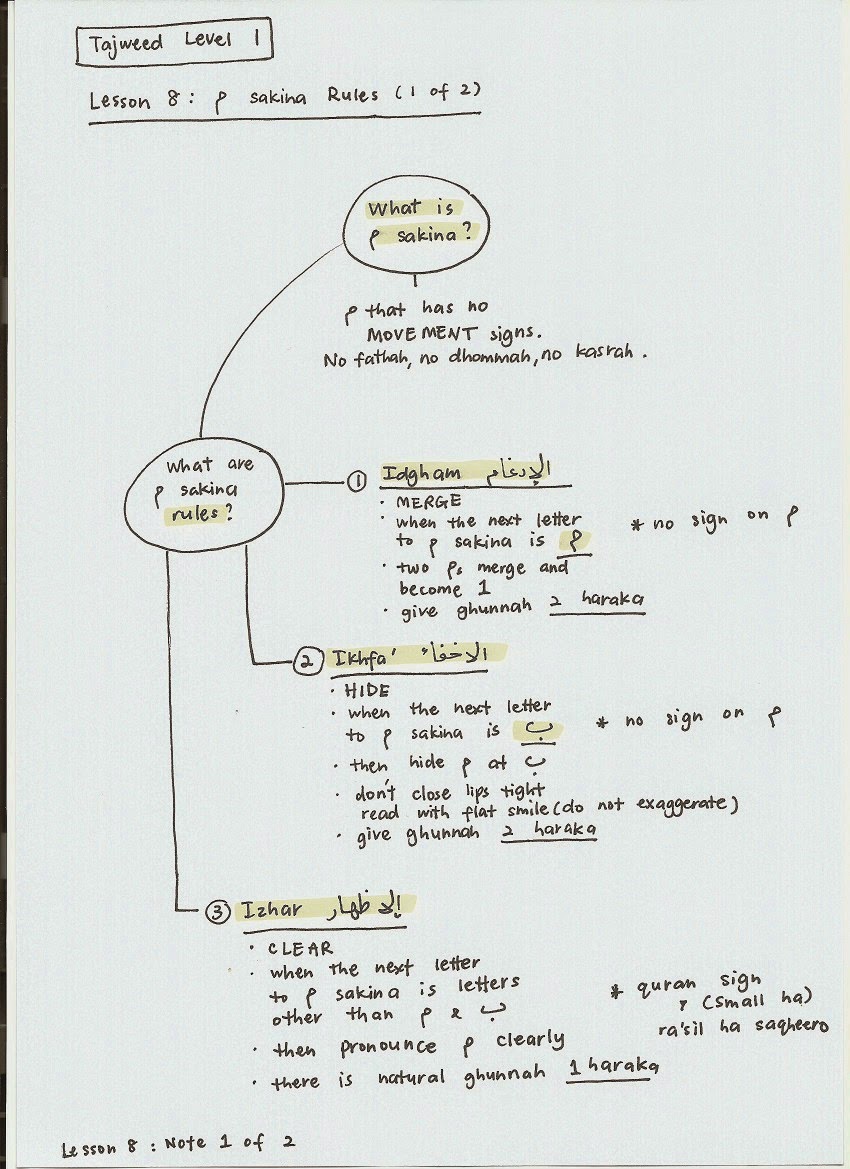 Tajweed Level 1
Lesson 8 : م sakina Rules (1 of 2)
What is
م sakina?
م that has no
MOVEMENT signs.
No fathah, no dhommah, no kasrah.
What are
م sakina
rules?
① Idgham الإدغام
· MERGE
· when the next letter
to م sakina is م
* no sign on م
· two مs merge and
become 1
· give ghunnah 2 haraka
② Ikhfa' الاخفاء
· HIDE
· when the next letter
to م sakina is ب
* no sign on م
· then hide م at ب
· don't close lips tight
read with flat smile (do not exaggerate)
· give ghunnah 2 haraka
③ Izhar الاظهار
· CLEAR
· when the next letter
to م sakina is letters
other than م & ب
* quran sign
(small ha)
ra'sil ha sagheero
· then pronounce م clearly
· there is natural ghunnah 1 haraka
Lesson 8 : Note 1 of 2